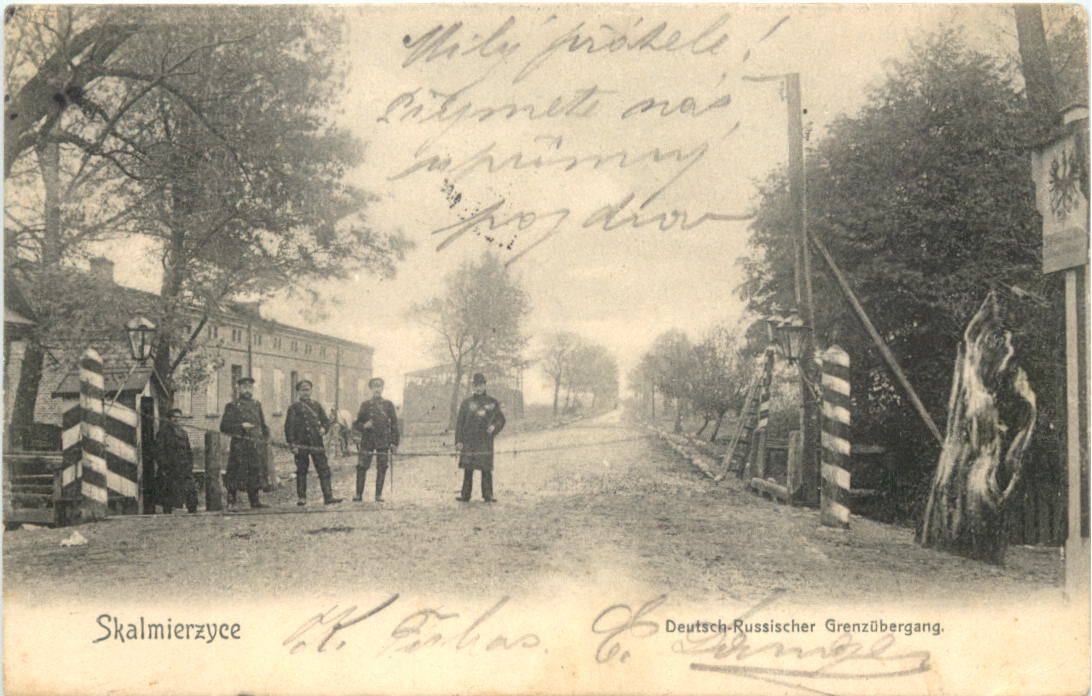 Milý příteli!
Přijmete náš
upřímný
pozdrav
Skalmierzyce
K.
C.
Deutsch-Russischer Grenzübergang.